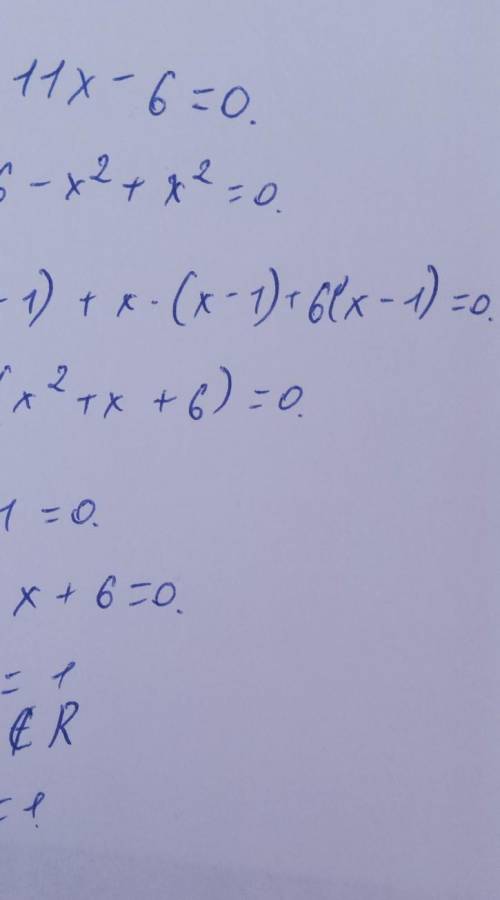 11x - 6 = 0.
6 - x² + x² = 0.
- 1) + x · (x - 1) + 6(x - 1) = 0.
(x² + x + 6) = 0.
1 = 0.
x + 6 = 0.
= 1
∉ R
= 1.